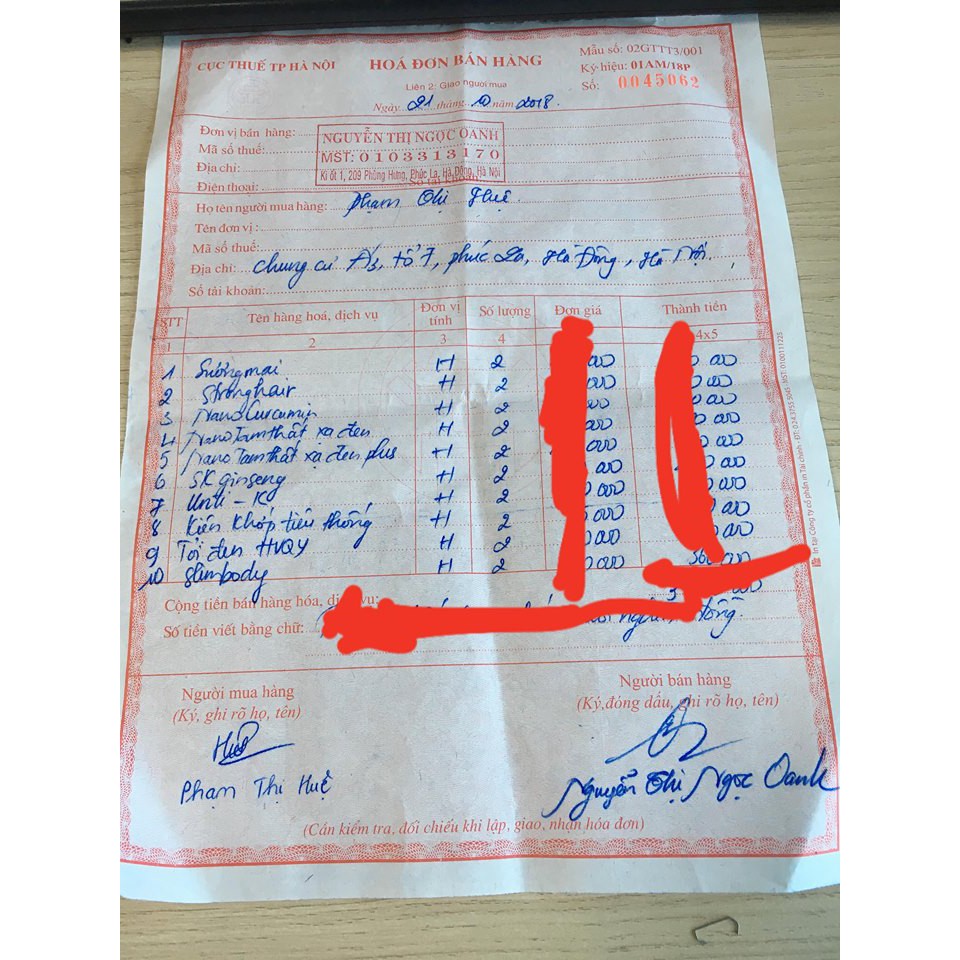 CỤC THUẾ TP HÀ NỘI
HOÁ ĐƠN BÁN HÀNG
Mẫu số: 02GTTT3/001
Ký hiệu: 01AM/18P
Liên 2: Giao người mua
Số: 0045062
Ngày 21 tháng 10 năm 2018.
Đơn vị bán hàng:
NGUYỄN THỊ NGỌC OANH
Mã số thuế:
MST: 0103313170
Địa chỉ:
Ki ốt 1, 209 Phùng Hưng, Phúc La, Hà Đông, Hà Nội
Điện thoại:
Họ tên người mua hàng: Phạm Thị Huệ.
Tên đơn vị:
Mã số thuế:
Địa chỉ: Chung cư A3, tổ 7, phúc La, Hà Đông, Hà Nội.
Số tài khoản:
STT Tên hàng hoá, dịch vụ Đơn vị tính Số lượng Đơn giá Thành tiền
1 2 3 4 4x5
1 Sươngmai H 2
2 Stronghair H 2
3 NanoCurcumin H 2
4 NanoTamthất xạ đen H 2
5 NanoTamthất xạ đen plus H 2
6 SK ginseng H 2
7 Unti - K H 2
8 Kiện Khớp tiêu thống H 2
9 Tỏi đen HVQY H 2
10 Slimbody H 2
Cộng tiền bán hàng hóa, dịch vụ:
Số tiền viết bằng chữ: đồng.
Người mua hàng
(Ký, ghi rõ họ, tên)
Người bán hàng
(Ký,đóng dấu, ghi rõ họ, tên)
Phạm Thị Huệ
Nguyễn Thị Ngọc Oanh
(Cần kiểm tra, đối chiếu khi lập, giao, nhận hóa đơn)